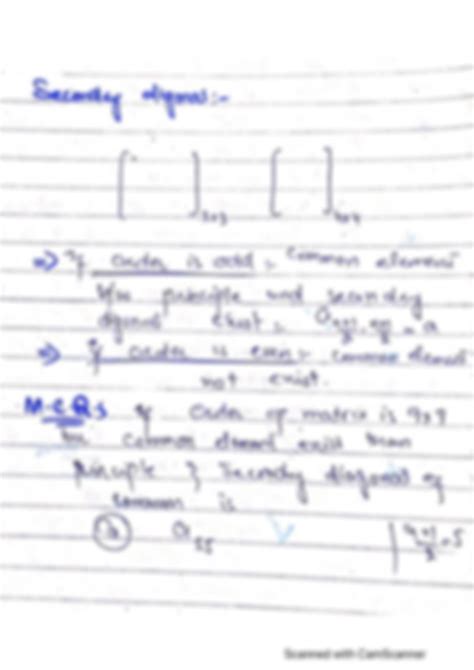 Secondry digonal:-
[ ]3×3 [ ]4×4
=> If order is odd, common element
b/w principle and secondry
digonal exist
=> If order is even, common element
not exist.
M.C.Q.s If order of matrix is 9×9
common element exist than
principle & Secondry diagonal of
common is
(b) a55 9+1/2 = 5
Scanned with CamScanner